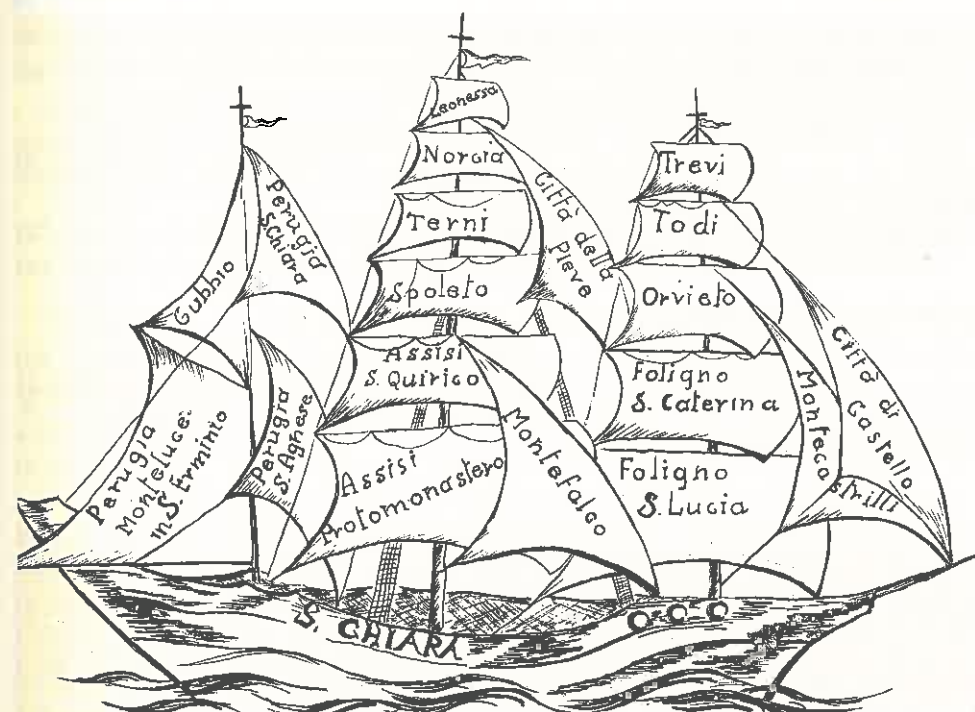 Gubbio
Perugia
S. Chiara
Perugia
Monteluce:
in S. Erminio
Perugia
S. Agnese
Leonessa
Norcia
Terni
Spoleto
Assisi
S. Quirico
Assisi
Protomonastero
Città della
Pieve
Montefalco
Trevi
Todi
Orvieto
Foligno
S. Caterina
Foligno
S. Lucia
Montecastrilli
Città di
Castello
S. CHIARA